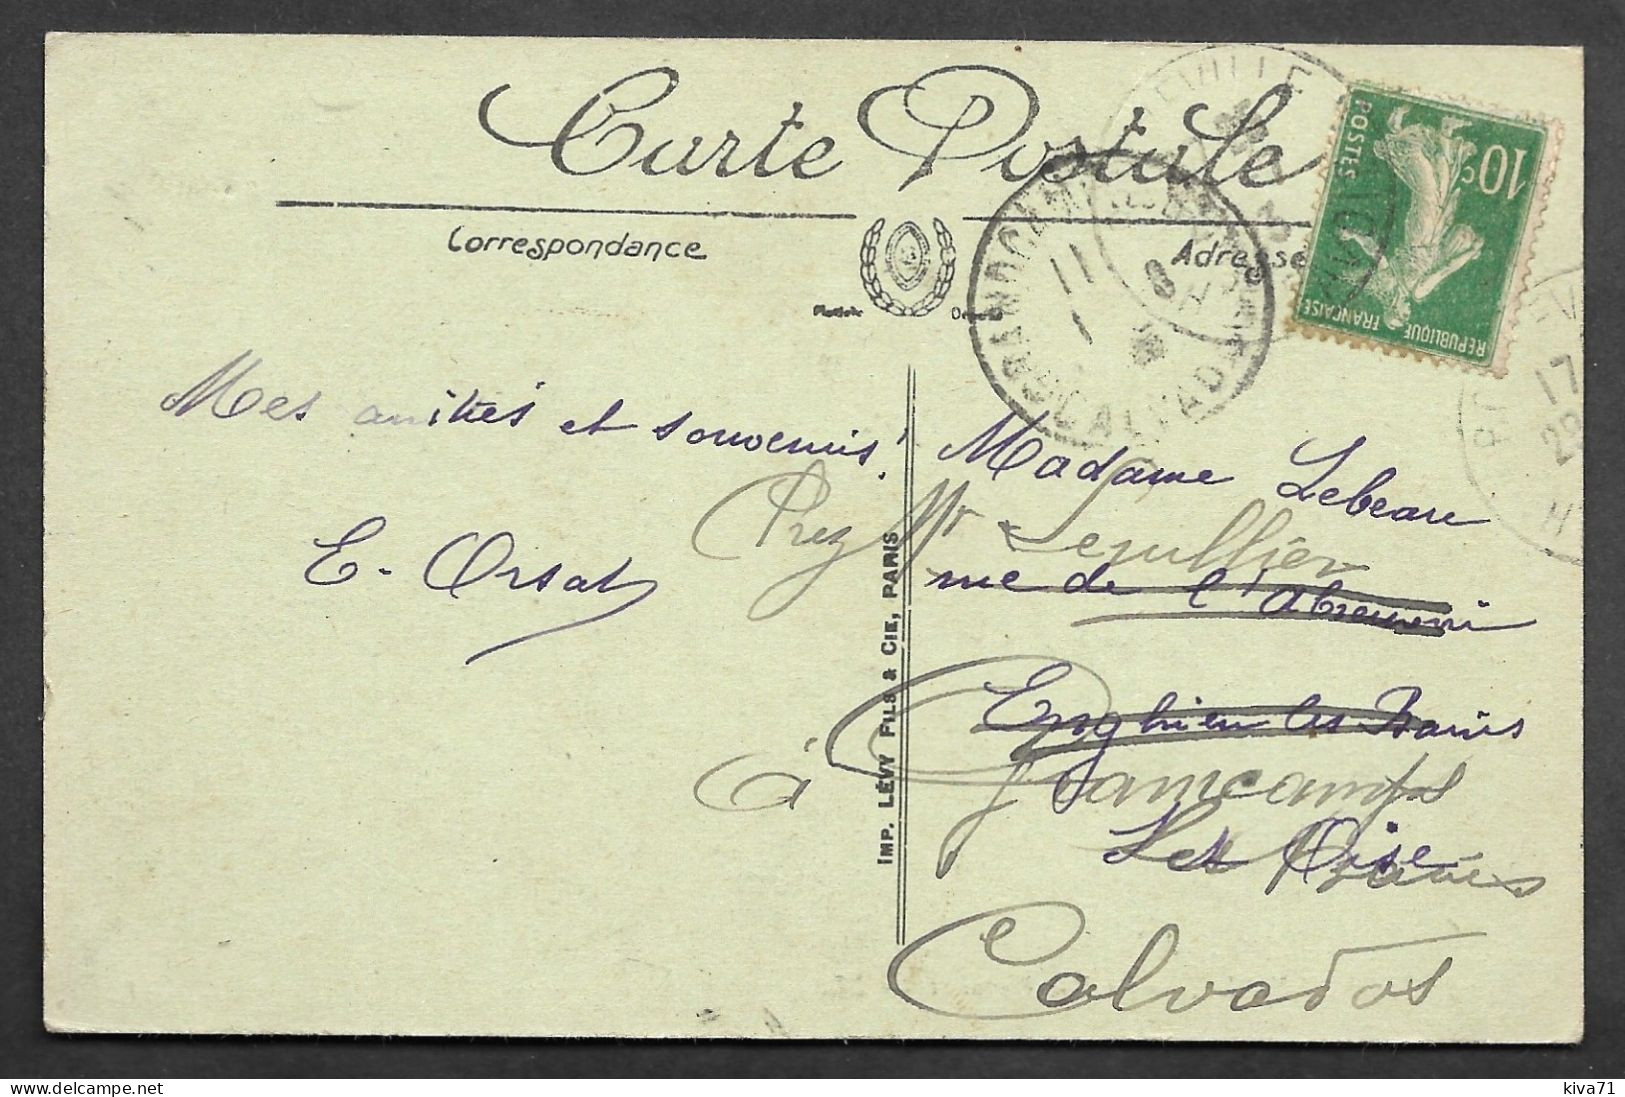 Carte Postale
Correspondance
Adresse
10c
POSTES
REPUBLIQUE FRANÇAISE
GRANDCAMP
CALVADOS
17
Mes amitiés et souvenirs!
E. Orsat
Madame Lebeau
Chez Mr
rue de l'
Enghien les Bains
à Grancamps
Les Bains
Set Oise
Calvados
IMP. LÉVY FILS & CIE, PARIS
www.delcampe.net
kiva71